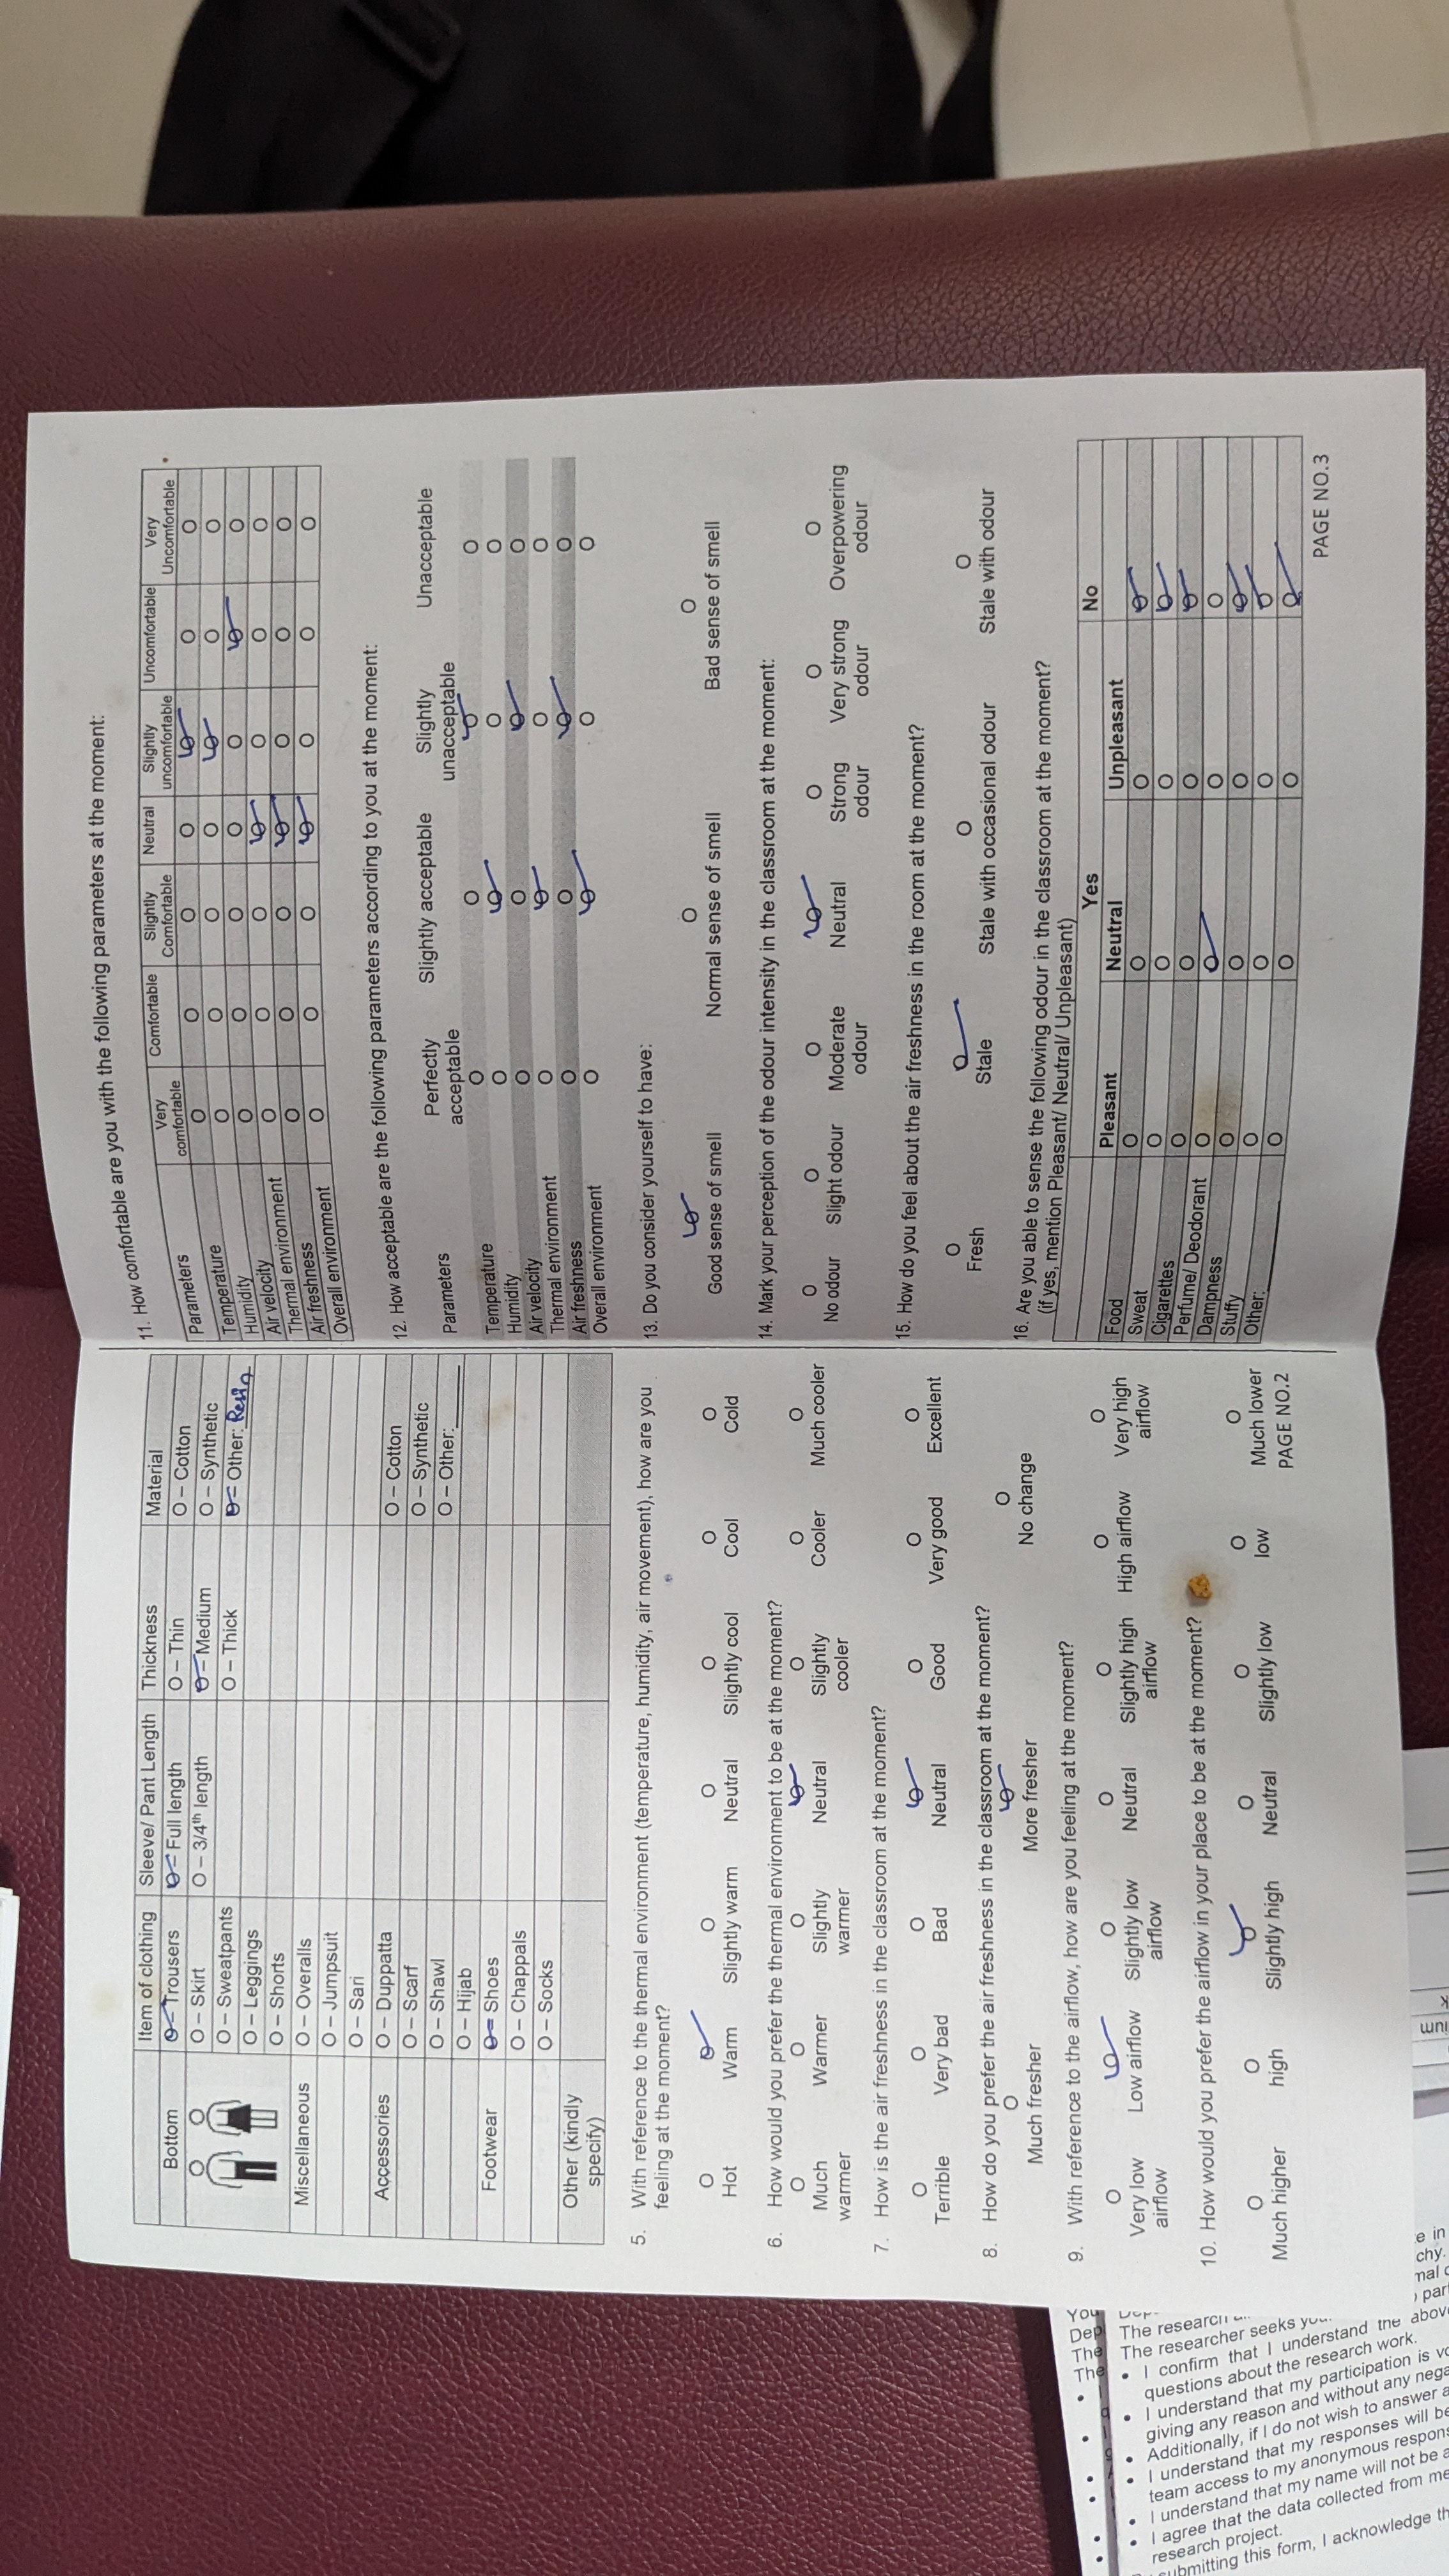 Item of clothing Sleeve/ Pant Length Thickness Material
Bottom O – Trousers O – Full length O – Thin O – Cotton
O – Skirt O – 3/4th length O – Medium O – Synthetic
O – Sweatpants O – Thick O – Other: Resin
O – Leggings
O – Shorts
Miscellaneous O – Overalls
O – Jumpsuit
O – Sari
Accessories O – Duppatta O – Cotton
O – Scarf O – Synthetic
O – Shawl O – Other:
O – Hijab
Footwear O – Shoes
O – Chappals
O – Socks
Other (kindly
specify)
5. With reference to the thermal environment (temperature, humidity, air movement), how are you
feeling at the moment?
O O O O O O O
Hot Warm Slightly warm Neutral Slightly cool Cool Cold
6. How would you prefer the thermal environment to be at the moment?
O O O O O O O
Much Warmer Slightly Neutral Slightly Cooler Much cooler
warmer warmer cooler
7. How is the air freshness in the classroom at the moment?
O O O O O O O
Terrible Very bad Bad Neutral Good Very good Excellent
8. How do you prefer the air freshness in the classroom at the moment?
O O O
Much fresher More fresher No change
9. With reference to the airflow, how are you feeling at the moment?
O O O O O O O
Very low Low airflow Slightly low Neutral Slightly high High airflow Very high
airflow airflow airflow airflow
10. How would you prefer the airflow in your place to be at the moment?
O O O O O O O
Much higher high Slightly high Neutral Slightly low low Much lower
PAGE NO.2
11. How comfortable are you with the following parameters at the moment:
Parameters Very comfortable Comfortable Slightly Comfortable Neutral Slightly uncomfortable Uncomfortable Very Uncomfortable
Temperature O O O O O O O
Humidity O O O O O O O
Air velocity O O O O O O O
Thermal environment O O O O O O O
Air freshness O O O O O O O
Overall environment O O O O O O O
12. How acceptable are the following parameters according to you at the moment:
Parameters Perfectly acceptable Slightly acceptable Slightly unacceptable Unacceptable
Temperature O O O O
Humidity O O O O
Air velocity O O O O
Thermal environment O O O O
Air freshness O O O O
Overall environment O O O O
13. Do you consider yourself to have:
O O O
Good sense of smell Normal sense of smell Bad sense of smell
14. Mark your perception of the odour intensity in the classroom at the moment:
O O O O O O O
No odour Slight odour Moderate Neutral Strong Very strong Overpowering
odour odour odour odour
15. How do you feel about the air freshness in the room at the moment?
O O O O
Fresh Stale Stale with occasional odour Stale with odour
16. Are you able to sense the following odour in the classroom at the moment?
(if yes, mention Pleasant/ Neutral/ Unpleasant)
Yes No
Pleasant Neutral Unpleasant
Food O O O O
Sweat O O O O
Cigarettes O O O O
Perfume/ Deodorant O O O O
Dampness O O O O
Stuffy O O O O
Other: O O O O
PAGE NO.3
You
Dep The research
The The researcher seeks
The • I confirm that I understand the abov
questions about the research work.
• I understand that my participation is
giving any reason and without any
• Additionally, if I do not wish to answer
• I understand that my responses will
team access to my anonymous
• I understand that my name will not be
• I agree that the data collected from me
research project.
submitting this form, I acknowledge